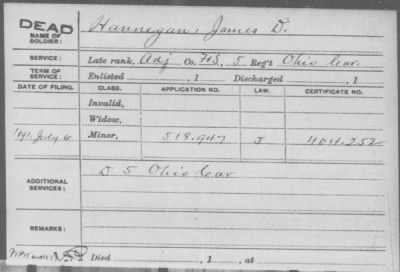 DEAD
NAME OF SOLDIER: Hannegan, James D.
SERVICE: Late rank, Adj Co. F&S, 5 Reg't Ohio Cav.
TERM OF SERVICE: Enlisted , 1 Discharged , 1
DATE OF FILING. CLASS. APPLICATION NO. LAW. CERTIFICATE NO.
Invalid,
Widow,
1891 July 10 Minor, 518.947 J 404.252
ADDITIONAL SERVICES: D 5 Ohio Cav
REMARKS:
Died , 1 , at